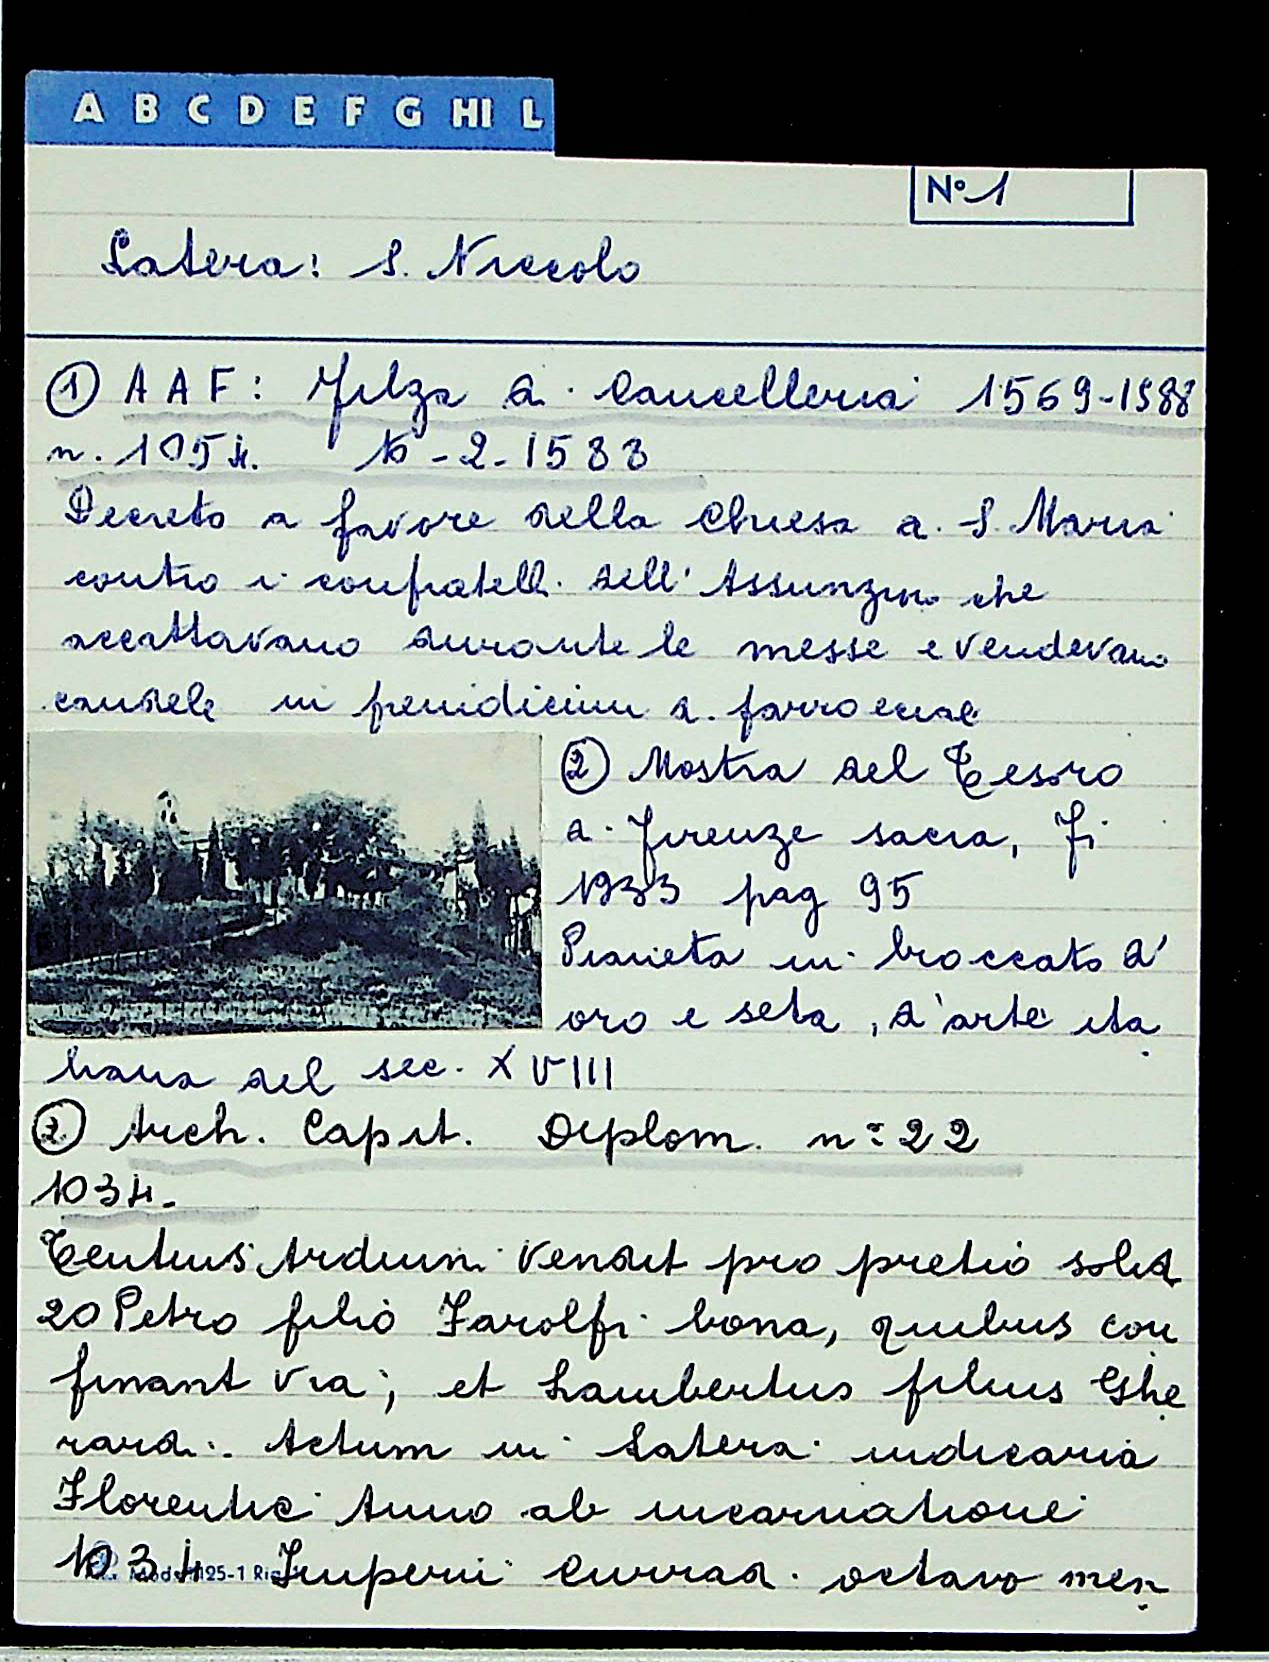 A B C D E F G HI L
N° 1
Latera: S. Niccolo
① A A F: Filza di Cancelleria 1569-1588
n. 1054. 16-2-1583
Decreto a favore della Chiesa di S. Maria
contro i confratelli dell'Assunzione che
accattavano durante le messe e vendevano
candele in preiudicium d. parrocciae
② Mostra del Tesoro
di Firenze sacra, Fi
1933 pag 95
Pianeta in broccato d'
oro e seta, d'arte ita
liana del sec. XVIII
② Arch. Capit. Diplom. n° 22
1034.
Teutius Arduini vendit pro pretio solid
20 Petro filio Farolfi bona, quibus con
finant via; et Lambertus filius Ghe
rardi. Actum in Latera iudicaria
Florentie Anno ab incarnatione
1034 Imperii Curradi octavo men
Mod. 125-1 Ri